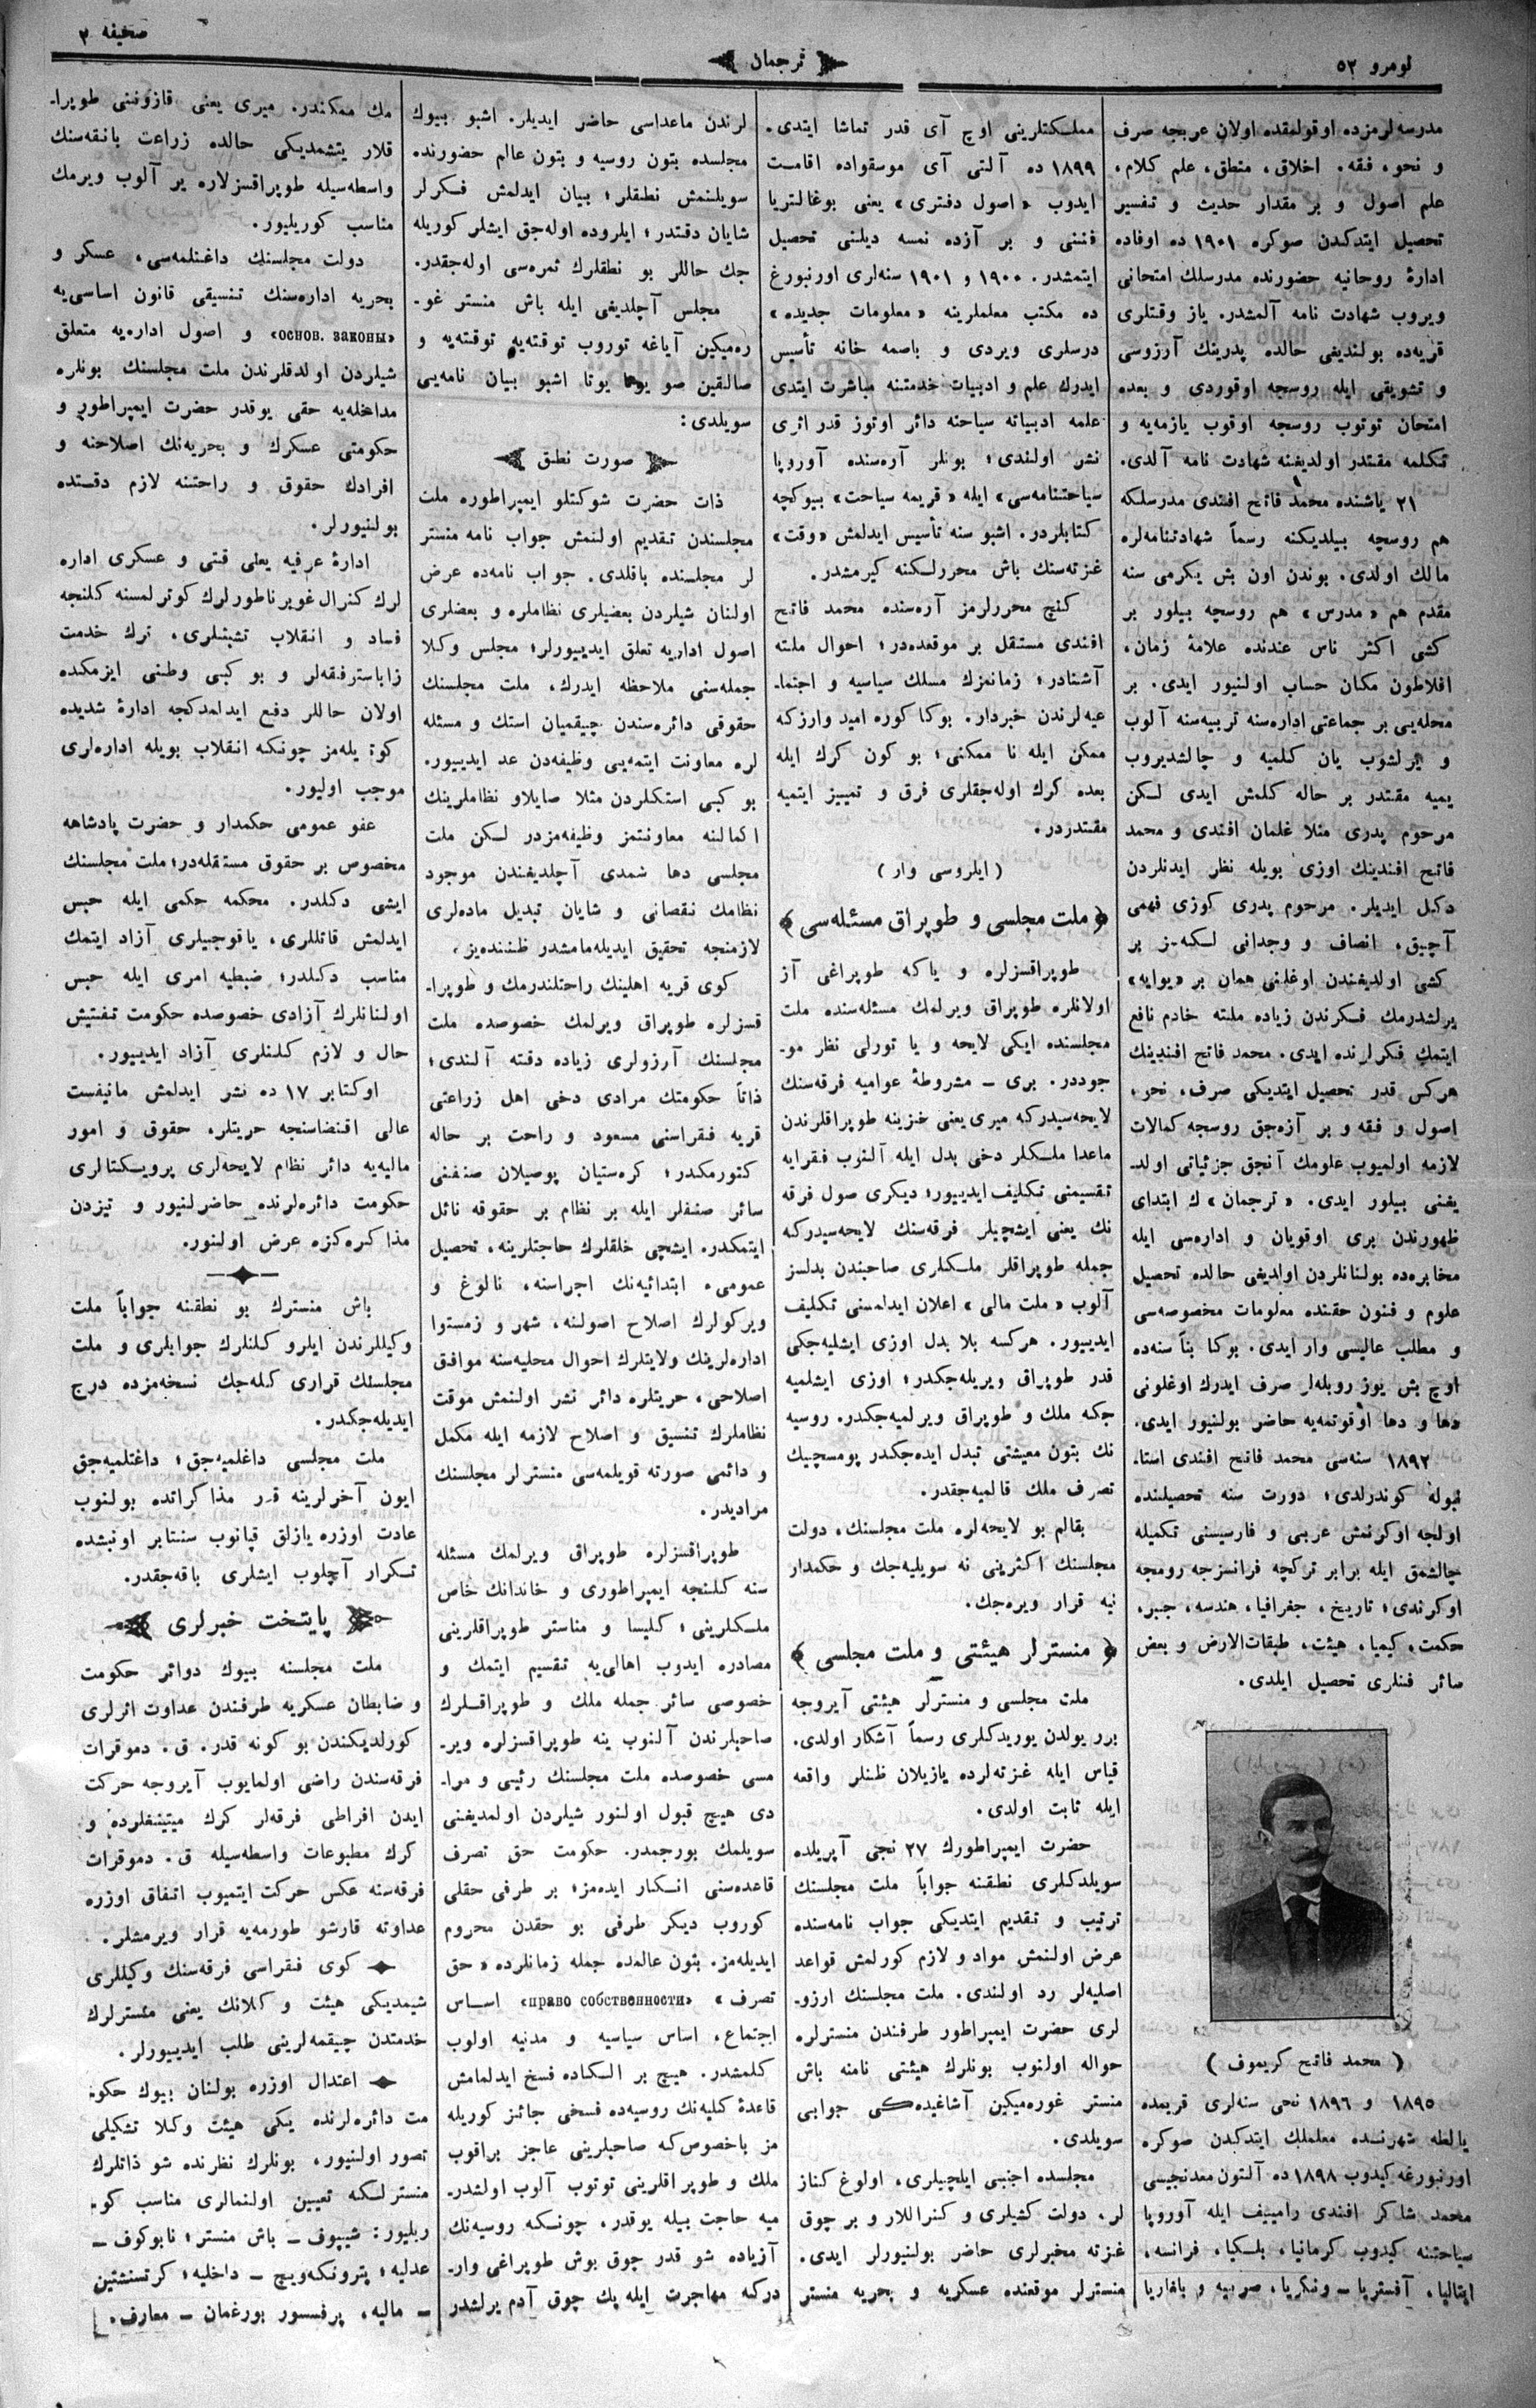 لومرو ٥٢
ترجمان
صحیفه ٢
مدرسه‌لرمزده اوقولمقده اولان عربجه صرف
و نحو، فقه. اخلاق، منطق، علم کلام،
علم اصول و بر مقدار حدیث و تفسیر
تحصیل ایتدکدن صوکره ١٩٠١ ده اوفاده
ادارهٔ روحانیه حضورنده مدرسلك امتحانی
ویروب شهادت نامه آلمشدر. یاز وقتلری
قریه‌ده بولندیغی حالده پدرینك آرزوسی
و تشویقی ایله روسجه اوقوردی و بعده
امتحان توتوب روسجه اوقوب یازمه‌یه و
تکلمه مقتدر اولدیغنه شهادت نامه آلدی.
٢١ یاشنده محمد فاتح افندی مدرسلکه
هم روسجه بیلدیکنه رسماً شهادتنامه‌لره
مالك اولدی. بوندن اون بش یکرمی سنه
مقدم هم «مدرس» هم روسجه بیلور بر
کشی اکثر ناس عندنده علامهٔ زمان،
افلاطون مکان حساب اولنیور ایدی. بر
محله‌یی بر جماعتی اداره‌سنه تربیه‌سنه آلوب
و یرلشوب یان کلمیه و جالشدیروب
یمیه مقتدر بر حاله کلمش ایدی لـکن
مرحوم پدری منلا غلمان افندی و محمد
فاتح افندینك اوزی بویله نظر ایدنلردن
دکل ایدیلر. مرحوم پدری کوزی فهمی
آچیق، انصاف و وجدانی لـکه‌ز بر
کشی اولدیغندن اوغلنی همان بر «یوایه»
یرلشدرمك فـکرندن زیاده ملته خادم نافع
ایتمك فکرلرنده ایدی. محمد فاتح افندینك
هرکس قدر تحصیل ایتدیکی صرف، نحو،
اصول و فقه و بر آزه‌جق روسجه کمالات
لازمه اولمیوب علومك آنجق جزئیاتی اولد-
یغنی بیلور ایدی. «ترجمان» ك ابتدای
ظهورندن بری اوقویان و اداره‌سی ایله
مخابره‌ده بولنانلردن اولدیغی حالده تحصیل
علوم و فنون حقنده معلومات مخصوصه‌سی
و مطلب عالیسی وار ایدی. بوکا بناً سنه‌ده
اوچ بش یوز روبله‌لر صرف ایدرك اوغلونی
دها و دها اوقوتمه‌یه حاضر بولنیور ایدی.
١٨٩٢ سنه‌سی محمد فاتح افندی استا-
نبوله کوندرلدی؛ دورت سنه تحصیلنده
اولجه اوکرنمش عربی و فارسیسنی تکمیله
چالشمق ایله برابر ترکچه فرانسزجه رومجه
اوکرندی؛ تاریخ، جغرافیا، هندسه، جبر،
حکمت، کیمیا، هیئت، طبقات‌الارض و بعض
سائر فنلری تحصیل ایلدی.
( محمد فاتح کریموف )
١٨٩٥ و ١٨٩٦ نجی سنه‌لری قریمده
یالطه شهرنـده معلملك ایتدکدن صوکره
اورنبورغه کیدوب ١٨٩٨ ده آلتون معدنجیسی
محمد شاکر افندی رامییف ایله آوروپا
سیاحتنه کیدوب کرمانیا، بلـکیا، فرانسه،
ایتالیا، آفستریا — ونکریا، صربیه و بلغاریا
مملـکتلرینی اوچ آی قدر تماشا ایتدی.
١٨٩٩ ده آلتی آی موسقواده اقامت
ایدوب «اصول دفتری» یعنی بوغالتریا
فننی و بر آزده نمسه دیلنی تحصیل
ایتمشدر. ١٩٠٠ و ١٩٠١ سنه‌لری اورنبورغ
ده مکتب معلملرینه «معلومات جدیده»
درسلری ویردی و باصمه خانه تأسیس
ایدرك علم و ادبیات خدمتنه مباشرت ایتدی
علمه ادبیاته سیاحته دائر اوتوز قدر اثری
نشر اولندی؛ بونلر آره‌سنده آوروپا
سیاحتنامه‌سی» ایله «قریمه سیاحت» بیوکچه
کتابلردر. اشبو سنه تأسیس ایدلمش «وقت»
غزته‌سنك باش محررلـکنه کیرمشدر.
کنج محررلرمز آره‌سنده محمد فاتح
افندی مستقل بر موقعده‌در؛ احوال ملته
آشنادر؛ زمانمزك مسلك سیاسیه و اجتما-
عیه‌لرندن خبردار. بوکا کوره امید وارزکه
ممکن ایله نا ممکنی؛ بو کون کرك ایله
بعده کرك اوله‌جقلری فرق و تمییز ایتمیه
مقتدردر.
( ایلروسی وار )
﴿ ملت مجلسی و طوپراق مسئله‌سی ﴾
طوپراقسزلره و یاکه طوپراغی آز
اولانلره طوپراق ویرلمك مسئله‌سنده ملت
مجلسنده ایکی لایحه و یا تورلی نظر مو-
جوددر. بری — مشروطهٔ عوامیه فرقه‌سنك
لایحه‌سیدرکه میری یعنی خزینه طوپراقلرندن
ماعدا ملـکلر دخی بدل ایله آلنوب فقرایه
تقسیمنی تکلیف ایدییور؛ دیکری صول فرقه
نك یعنی ایشچیلر فرقه‌سنك لایحه‌سیدرکه
جمله طوپراقلر ملـکلری صاحبندن بدلسز
آلوب «ملت مالی» اعلان ایدلمسنی تکلیف
ایدییور. هرکسه بلا بدل اوزی ایشلیه‌جکی
قدر طوپراق ویریله‌جکدر؛ اوزی ایشلمیه
جکه ملك و طوپراق ویرلمیه‌جکدر. روسیه
نك بتون معیشتی تبدل ایده‌جکدر پومسچیك
تصرف ملك قالمیه‌جقدر.
بقالم بو لایحه‌لره ملت مجلسنك، دولت
مجلسنك اکثرینی نه سویلیه‌جك و حکمدار
نیه قرار ویره‌جك.
﴿ منسترلر هیئتی و ملت مجلسی ﴾
ملت مجلسی و منسترلر هیئتی آیروجه
برر یولدن یوریدکلری رسماً آشکار اولدی.
قیاس ایله غزته‌لرده یازیلان ظنلر واقعه
ایله ثابت اولدی.
حضرت ایمپراطورك ٢٧ نجی آپریلده
سویلدکلری نطقنه جواباً ملت مجلسنك
ترتیب و تقدیم ایتدیکی جواب نامه‌سنده
عرض اولنمش مواد و لازم کورلمش قواعد
اصلیه‌لر رد اولندی. ملت مجلسنك ارزو-
لری حضرت ایمپراطور طرفندن منسترلره
حواله اولنوب بونلرك هیئتی نامنه باش
منستر غوره‌میکین آشاغیده‌کی جوابی
سویلدی.
مجلسده اجنبی ایلچیلری، اولوغ کناز
لر، دولت کشیلری و کنراللار و بر چوق
غزته مخبرلری حاضر بولنیورلر ایدی.
منسترلر موقعنده عسکریه و بحریه منستر
لرندن ماعداسی حاضر ایدیلر. اشبو بیوك
مجلسده بتون روسیه و بتون عالم حضورنده
سویلنمش نطقلر؛ بیان ایدلمش فـکرلر
شایان دقتدر؛ ایلروده اوله‌جق ایشلر کوریله
جك حاللر بو نطقلرك ثمره‌سی اوله‌جقدر.
مجلس آچلدیغی ایله باش منستر غو-
ره‌میکین آیاغه توروب توقته‌یه توقته‌یه و
صالقین صو یوتا یوتا اشبو بیان نامه‌یی
سویلدی:
صورت نطق
ذات حضرت شوکتلو ایمپراطوره ملت
مجلسندن تقدیم اولنمش جواب نامه منستر
لر مجلسنده باقلدی. جواب نامه‌ده عرض
اولنان شیلردن بعضیلری نظاملره و بعضلری
اصول اداریه تعلق ایدییورلر؛ مجلس وکلا
جمله‌سنی ملاحظه ایدرك، ملت مجلسنك
حقوقی دائره‌سندن چیقمیان استك و مسئله
لره معاونت ایتمه‌یی وظیفه‌دن عد ایدییور.
بو کبی استکلردن مثلا صایلاو نظاملرینك
اکمالنه معاونتمز وظیفه‌مزدر لـکن ملت
مجلسی دها شمدی آچلدیغندن موجود
نظامك نقصانی و شایان تبدیل ماده‌لری
لازمنجه تحقیق ایدیله‌مامشدر ظننده‌یز.
کوی قریه اهلینك راحتلندرمك و طوپرا-
قسزلره طوپراق ویرلمك خصوصده ملت
مجلسنك آرزولری زیاده دقته آلندی؛
ذاتاً حکومتك مرادی دخی اهل زراعتی
قریه فقراسنی مسعود و راحت بر حاله
کتورمکدر؛ کره‌ستیان پوصیلان صنفنی
سائر صنفلر ایله بر نظام بر حقوقه نائل
ایتمکدر. ایشچی خلقلرك حاجتلرینه، تحصیل
عمومی، ابتدائیه‌نك اجراسنه، نالوغ و
ویرکولرك اصلاح اصولنه، شهر و زمستوا
اداره‌لرینك ولایتلرك احوال محلیه‌سنه موافق
اصلاحی، حریتلره دائر نشر اولنمش موقت
نظاملرك تنسیق و اصلاح لازمه ایله مکمل
و دائمی صورته قویلمه‌سی منسترلر مجلسنك
مرادیدر.
طوپراقسزلره طوپراق ویرلمك مسئله
سنه کلنجه ایمپراطوری و خاندانك خاص
ملـکلرینی؛ کلیسا و مناستر طوپراقلرینی
مصادره ایدوب اهالی‌یه تقسیم ایتمك و
خصوصی سائر جمله ملك و طوپراقـلرك
صاحبلرندن آلنوب ینه طوپراقسزلره ویر-
مسی خصوصده ملت مجلسنك رئیی و مرا-
دی هیچ قبول اولنور شیلردن اولمدیغنی
سویلمك بورجمدر. حکومت حق تصرف
قاعده‌سنی انـکار ایده‌مز؛ بر طرفی حقلی
کوروب دیکر طرفی بو حقدن محروم
ایدیله‌مز. بتون عالمده جمله زمانلرده «حق
تصرف» «право собственности» اسـاس
اجتماع، اساس سیاسیه و مدنیه اولوب
کلمشدر. هیچ بر الـکاده فسخ ایدلمامش
قاعدهٔ کلیه‌نك روسیه‌ده فسخی جائز کوریله
مز باخصوص‌که صاحبلرینی عاجز براقوب
ملك و طوپراقلرینی توتوب آلوب اولشدر-
میه حاجت بیله یوقدر، چونـکه روسیه‌نك
آزیاده شو قدر چوق بوش طوپراغی وار-
درکه مهاجرت ایله پك چوق آدم یرلشدر
مك ممکندر. میری یعنی قازوننی طوپرا-
قلار یتشمدیکی حالده زراعت بانقه‌سنك
واسطه‌سیله طوپراقسزلاره یر آلوب ویرمك
مناسب کوریلیور.
دولت مجلسنك داغتلمه‌سی، عسکر و
بحریه اداره‌سنك تنسیقی قانون اساسی‌یه
«основ. законы» و اصول اداره‌یه متعلق
شیلردن اولدقلرندن ملت مجلسنك بونلره
مداخله‌یه حقی یوقدر حضرت ایمپراطور و
حکومتی عسکرك و بحریه‌نك اصلاحنه و
افرادك حقوق و راحتنه لازم دقتده
بولنیورلر.
ادارهٔ عرفیه یعنی قتی و عسکری اداره
لرك کنرال غوبرناطورلرك کوترلمسنه کلنجه
فساد و انقلاب تشبثلری، ترك خدمت
زاباستوفقه‌لر و بو کبی وطننی ایزمکده
اولان حاللر دفع ایدلمدکجه ادارهٔ شدیده
کوتریله‌مز چونکه انقلاب بویله اداره‌لری
موجب اولیور.
عفو عمومی حکمدار و حضرت پادشاهه
مخصوص بر حقوق مستقله‌در؛ ملت مجلسنك
ایشی دکلدر. محکمه حکمی ایله حبس
ایدلمش قاتللری، یاقوجیلری آزاد ایتمك
مناسب دکلدر؛ ضبطیه امری ایله حبس
اولنانلرك آزادی خصوصده حکومت تفتیش
حال و لازم کلنلری آزاد ایدییور.
اوکتابر ١٧ ده نشر ایدلمش مانیفست
عالی اقتضاسنجه حریتلر، حقوق و امور
مالیه‌یه دائر نظام لایحه‌لری پرویـکتالری
حکومت دائره‌لرنده حاضرلنیور و تیزدن
مذاکره‌کزه عرض اولنور.
باش منسترك بو نطقنه جواباً ملت
وکیللرندن ایلرو کلنلرك جوابلری و ملت
مجلسنك قراری کله‌جك نسخه‌مزده درج
ایدیله‌جکدر.
ملت مجلسی داغلمیه‌جق؛ داغتلمیه‌جق
ایون آخرلرینه قدر مذاکراتده بولنوب
عادت اوزره یازلق قپانوب سنتابر اونبشده
تـکرار آچلوب ایشلری باقه‌جقدر.
پایتخت خبرلری
ملت مجلسنه بیوك دوائر حکومت
و ضابطان عسکریه طرفندن عداوت اثرلری
کورلدیکندن بو کونه قدر. ق. دموقرات
فرقه‌سندن راضی اولمایوب آیروجه حرکت
ایدن افراطی فرقه‌لر کرك میتینغلرده و
کرك مطبوعات واسطه‌سیله ق. دموقرات
فرقه‌سنه عکس حرکت ایتمیوب اتفاق اوزره
عداوته قارشو طورمه‌یه قرار ویرمشلر.
کوی فقراسی فرقه‌سنك وکیللری
شیمدیکی هیئت وکلانك یعنی منسترلرك
خدمتدن چیقمه‌لرینی طلب ایدییورلر.
اعتدال اوزره بولنان بیوك حکو-
مت دائره‌لرنده یکی هیئت وکلا تشکیلی
تصور اولنیور، بونلرك نظرنده شو ذاتلرك
منسترلـکه تعیین اولنمالری مناسب کو-
ریلیور: شیپوف — باش منستر؛ نابوکوف —
عدلیه؛ پترونکه‌ویچ — داخلیه؛ کرتسنشتین
— مالیه، پرفسسور بورغمان — معارف.